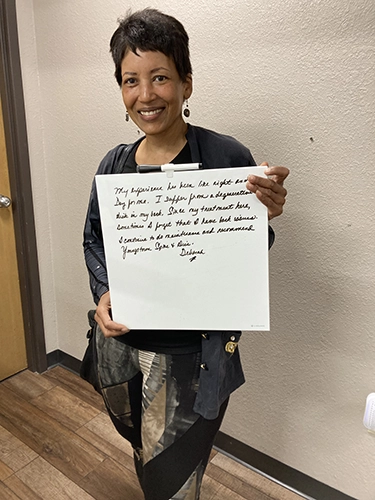 My experience has been like night and
Day for me. I suffer from a degenerative
disk in my back. Since my treatment here,
sometimes I forget that I have back issues.
I continue to do maintenance and recommend
Youngstrom Spine &
Debora